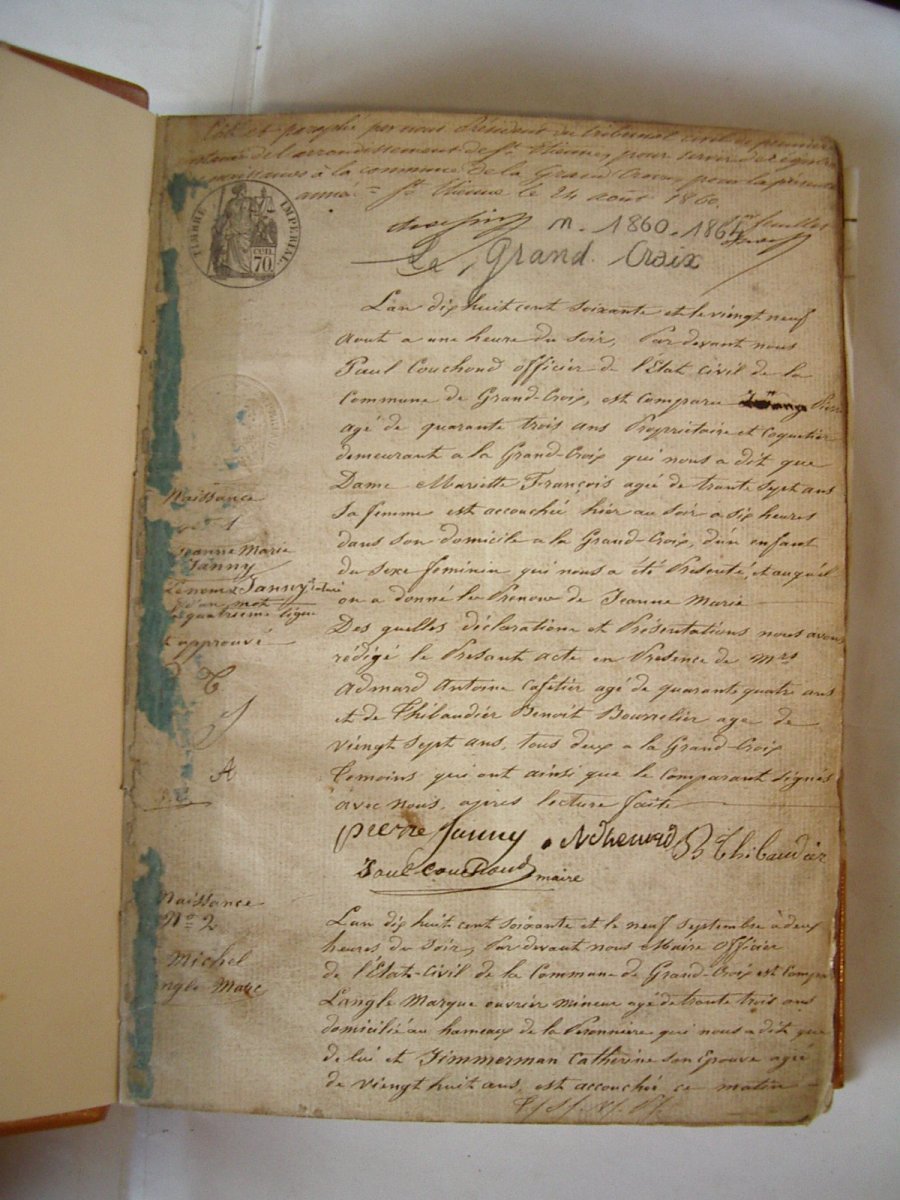 Coté et paraphé par nous Président du tribunal civil de première
instance de l'arrondissement de St Etienne, pour servir de registre
naissances à la commune de la Grand Croix, pour la présente
année St Etienne le 24 août 1860.
TIMBRE IMPERIAL
CEN.
70
n. 1860. 1864
feuillet
Le Grand. Croix
L'an dix huit cent soixante et le viengt neuf
Aout a une heure du soir, Par devant nous
Paul Couchoud officier de l'Etat civil de la
Commune de Grand-Croix, est comparu Pierre
agé de quarante trois ans Propriétaire et Coquetier
demeurant a la Grand-Croix qui nous a dit que
Dame Mariette François agée de trante sept ans
Sa femme est accouchée hier au soir a six heures
dans son domicile a la Grand-Croix, d'un enfant
du sexe feminin qui nous a été Présenté, et auquel
on a donné le Prenom de Jeanne Marie
Des quelles déclaration et Présentations nous avons
rédigé le Présant acte en Présence de Mrs
Admard Antoine Cafetier agé de quarante quatre ans
et de Thibaudier Benoit Bourrelier age de
viengt sept ans, tous deux a la Grand-Croix
Temoins qui ont ainsi que le Comparant signés
avec nous, après lecture faite
Naissance
Jeanne Marie
Janny
Le nom Janny
d'un mot
quatrieme ligne
approuvé
C
A
pierre Janny Adhemard B Thibaudier
Paul Couchoud maire
Naissance
No 2
Michel
ngle Marc
L'an dix huit cent soixante et le neuf septembre à deux
heures du soir, Par devant nous Maire officier
de l'Etat-Civil de la Commune de Grand-Croix est Compa
Langle Marque ouvrier mineur agé de trante trois ans
domicilié au hameaux de la Peronniere qui nous a dit que
de lui et Zimmerman Catherine son Epouve agée
de vienght huit ans, est accouchée ce matin